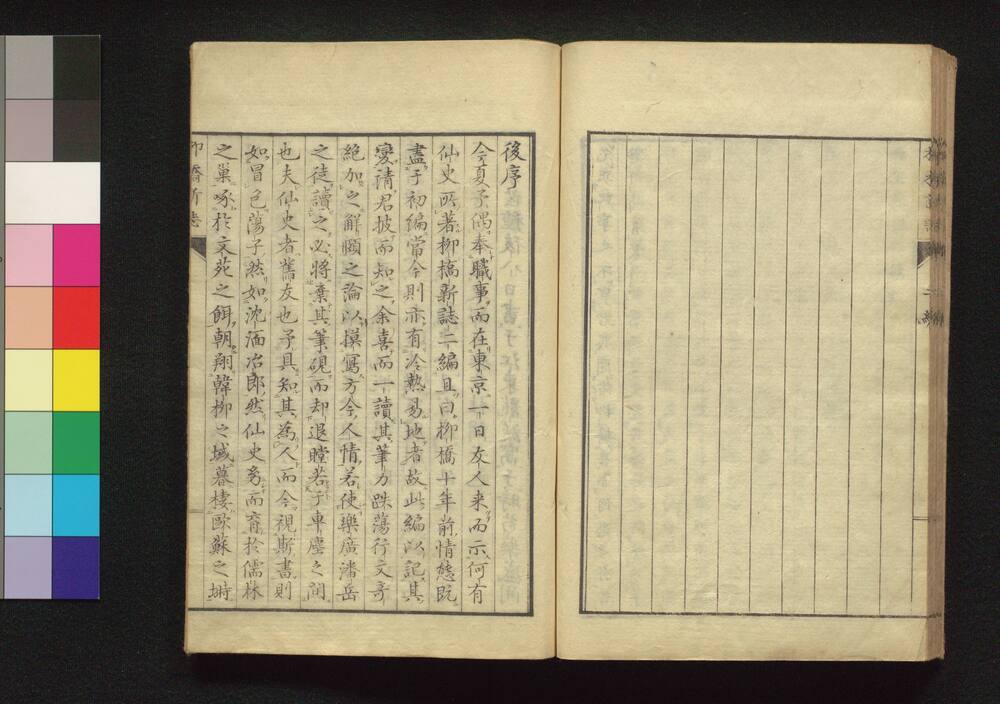 後序
今夏予偶奉職事而在東京一日友人来而示何有
仙史所著柳橋新誌二編且曰柳橋十年前情態既
盡于初編當今則亦有冷熱易地者故此編以記其
變請君披而知之余喜而一讀其筆力跌蕩行文奇
絶加之解頤之論以摸寫方今人情若使樂廣潘岳
之徒讀之必將棄其筆硯而却退瞠若于車塵之間
也夫仙史者舊友也予具知其為人而今視斯書則
如冒色蕩子然如沈湎冶郎然仙史労而育於儒林
之巢啄於文苑之餌朝翔韓柳之城暮棲歐蘇之塒
柳橋新誌